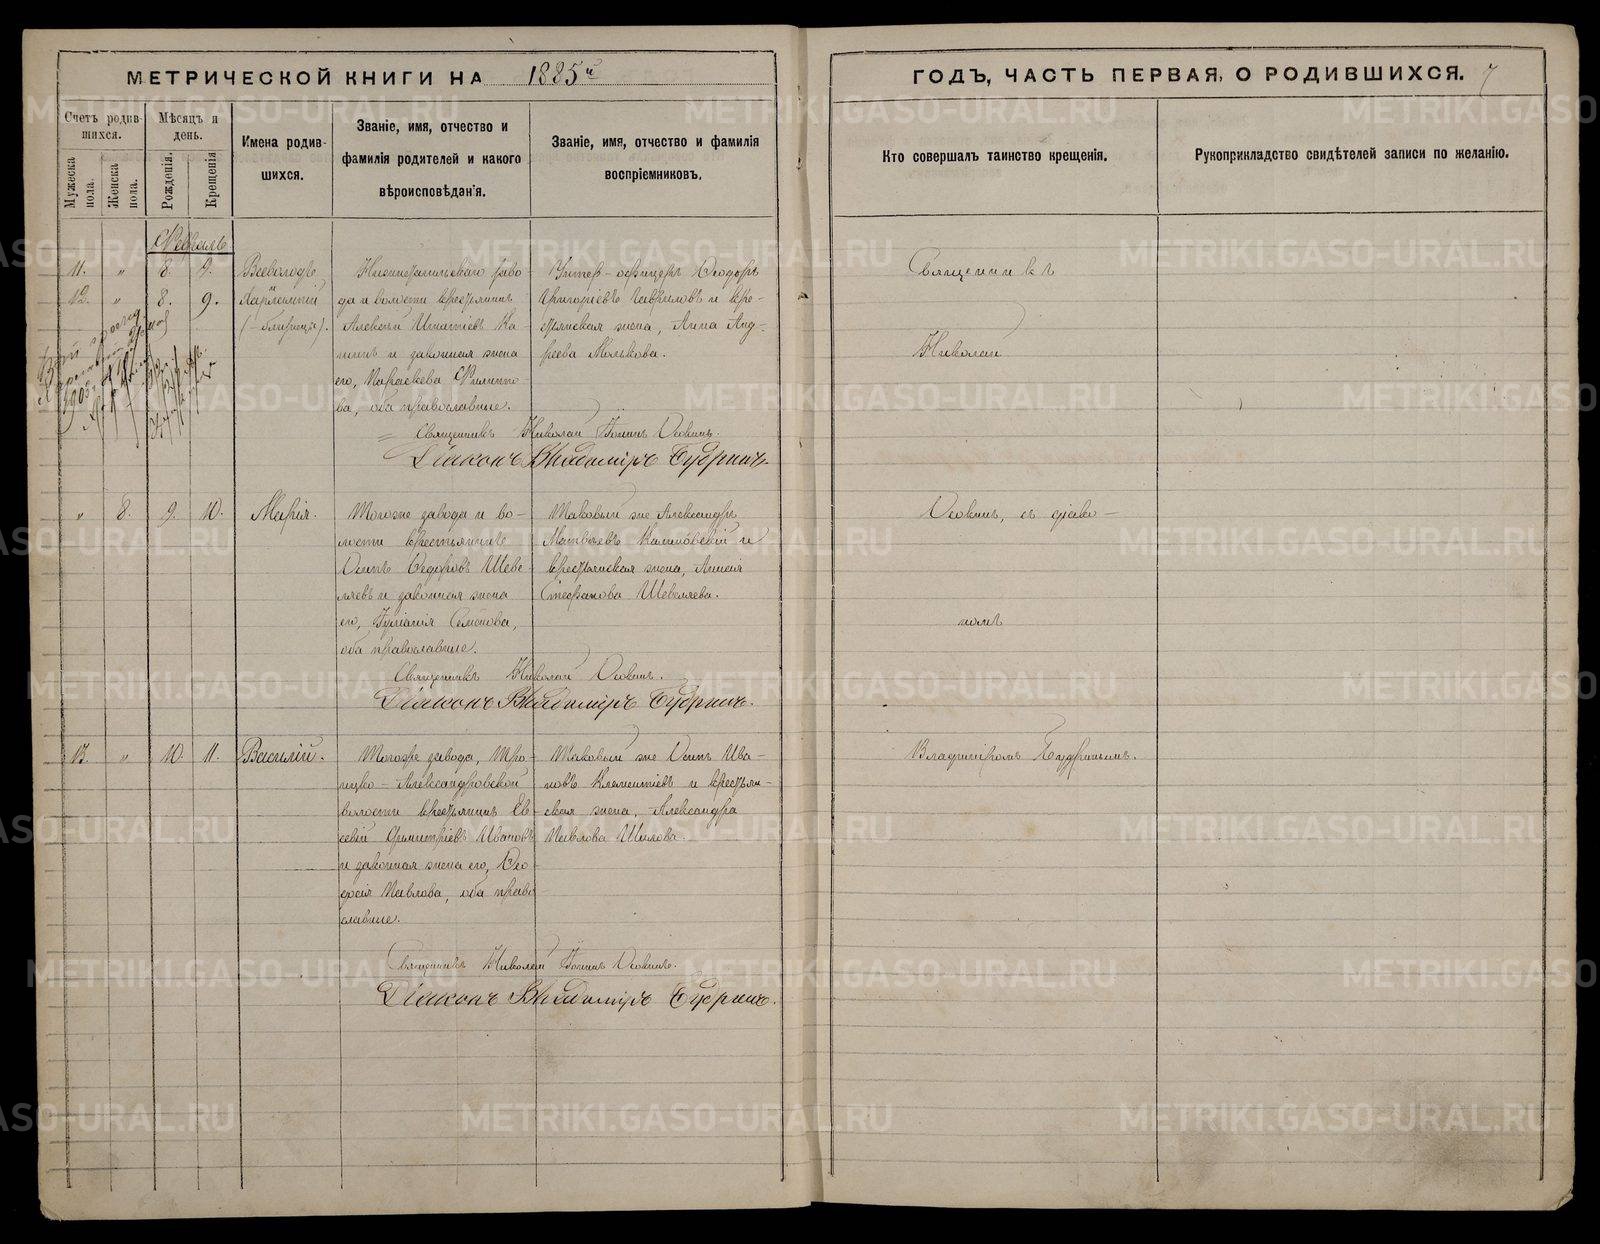 МЕТРИЧЕСКОЙ КНИГИ НА 1885й
ГОДЪ, ЧАСТЬ ПЕРВАЯ, О РОДИВШИХСЯ. 7
Счетъ родив-
шихся.
Мужеска пола.
Женска пола.
Мѣсяцъ и
день.
Рожденія.
Крещенія
Имена родив-
шихся.
Званіе, имя, отчество и
фамилія родителей и какого
вѣроисповѣданія.
Званіе, имя, отчество и фамилія
воспріемниковъ.
Кто совершалъ таинство крещенія.
Рукоприкладство свидѣтелей записи по желанію.
Февраль
11. " 8. 9. Всеволодъ
12. " 8. 9.
(близнецы).
Нижнетагильскаго заво-
да и волости крестьянинъ
Алексѣй Игнатіевъ Ка-
и законная жена
его, Параскева Филиппо
ва, оба православные.
Унтер-офицеръ Ѳеодоръ
Григоріевъ Гавриловъ и кре-
стьянская жена, Анна Анд-
реева Малькова.
Священникъ
Николай
Священникъ Николай Іоаннъ Осокинъ.
Діаконъ Владиміръ Будринъ.
" 8. 9. 10. Марія.
Тогоже завода и во-
лости крестьянинъ
Осипъ Ѳедоровъ Шеве-
левъ и законная жена
его, Іуліанія Семенова,
оба православные.
Таковый же Александръ
Матвѣевъ Калиновскій и
крестьянская жена, Анисія
Стефанова Шевелева.
Осокинъ, съ діако-
номъ
Священникъ Николай Осокинъ.
Діаконъ Владиміръ Будринъ.
13. " 10. 11. Василій.
Тогоже завода, Тро-
ицко-Александровской
волости крестьянинъ Ев
севій Димитріевъ Ивановъ
и законная жена его, Ѳео-
досія Павлова, оба право
славные.
Таковый же Осипъ Ива-
новъ Клементіевъ и крестьян-
ская жена, Александра
Павлова Шилова.
Владиміромъ Будринымъ.
Священникъ Николай Іоаннъ Осокинъ.
Діаконъ Владиміръ Будринъ.
METRIKI.GASO-URAL.RU